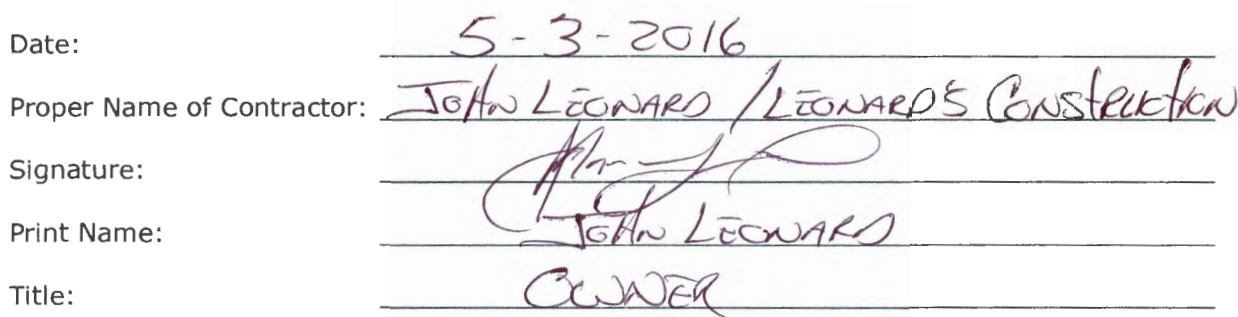 Date: 5-3-2016
Proper Name of Contractor: JOHN LEONARD / LEONARDS CONSTRUCTION
Signature:
Print Name: JOHN LEONARD
Title: OWNER